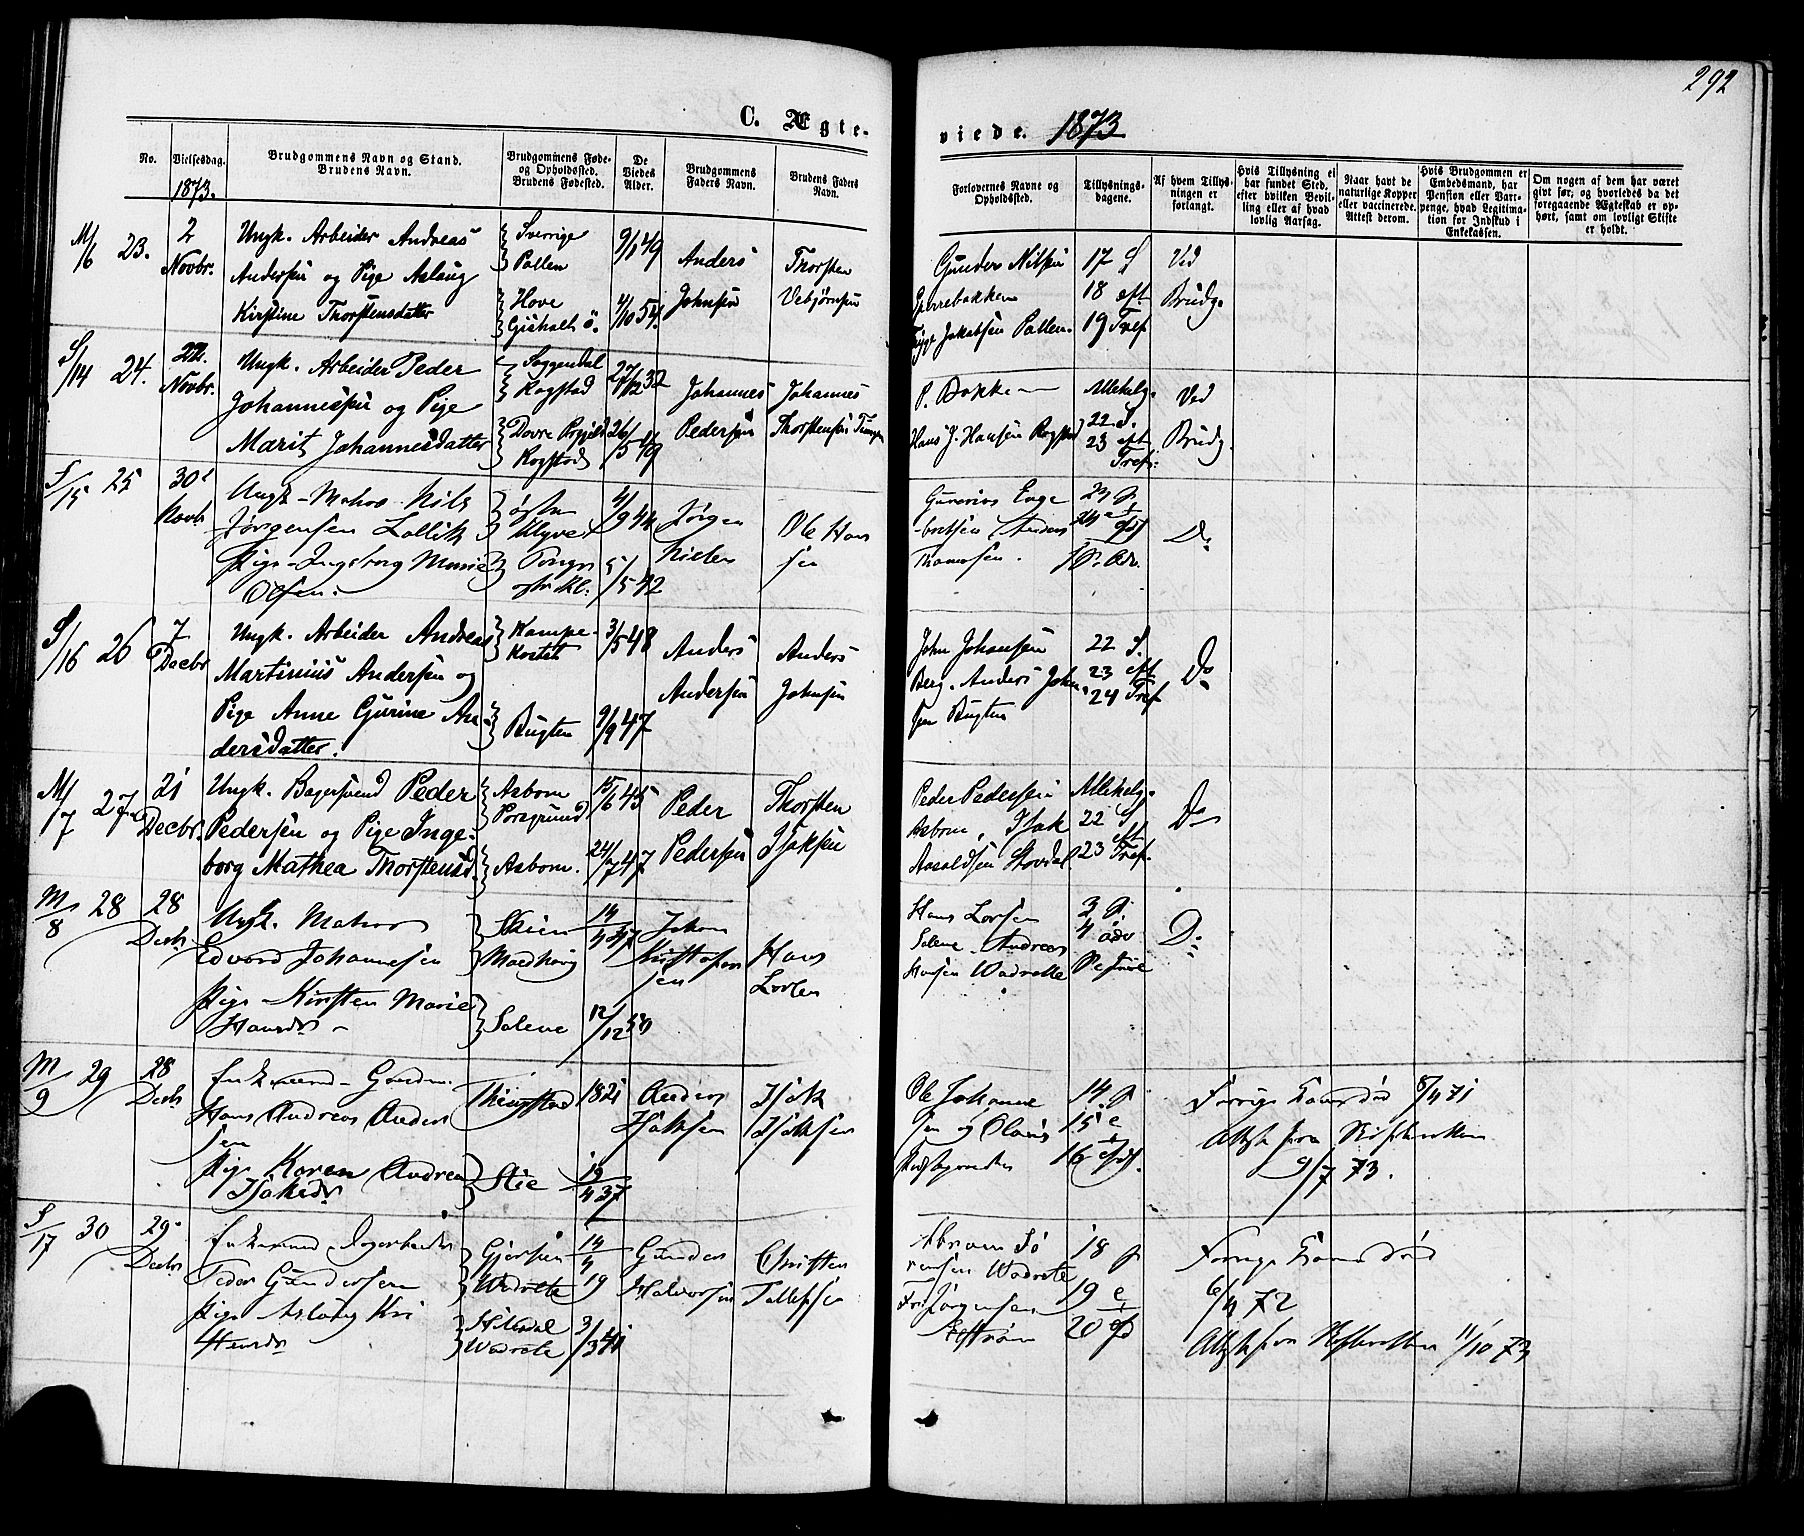 292
C. Ægte-
viede. 1873
No.
Vielsesdag.
1873.
Brudgommens Navn og Stand.
Brudens Navn.
Brudgommens Føde-
og Opholdssted.
Brudens Fødested.
De
Viedes
Alder.
Brudgommens
Faders Navn.
Brudens Faders
Navn.
Forlovernes Navne og
Opholdssted.
Tillysnings-
dagene.
Af hvem Tillys-
ningen er
forlangt.
Hvis Tillysning ei
har fundet Sted,
efter hvilken Bevil-
ling eller af hvad
lovlig Aarsag.
Naar havt de
naturlige Kopper
eller vaccinerede.
Attest derom.
Hvis Brudgommen er
Embedsmand, har
Pension eller Vart-
penge, hvad Legitima-
tion for Indskud i
Enkekassen.
Om nogen af dem har været
gift før, og hvorledes da det
foregaaende Ægteskab er op-
hørt, samt om lovligt Skifte
er holdt.
M/6 23.
2
Novbr.
Ungk. Arbeider Andreas
Andersen og Pige Aslaug
Kirstine Thorstensdatter
Sverrige
Pollen
Hove
Gisholt ö.
9/1 49
4/10 54.
Anders
Johnsen
Thorsten
Vebjørnsen
Gunder Nilsen
Jakobsen Pollen.
17 S
18 eft
19 Tref
Ved
Brudg.
S/14 24.
22.
Novbr.
Ungk. Arbeider Peder
Johannessen og Pige
Marit Johannesdatter
Soggendal
Rogstad
Dovre Prgjeld
Rogstad
27/12 32
26/5 49
Johannes
Pedersen
Johannes
Thorstensen
P. Bakke
Hans J. Hansen Rogstad
Allehelg.
22 S.
23 eft
Tref.
Ved
Brudg.
S/15 25
30
Novb
Ungk. Matros Nils
Jørgensen Lollik
Pige Ingeborg Marie
Olsen.
østre
Klyve
4/9 44
5/5 42
Jørgen
Nielsen
Ole Han
sen
Gunerius Enge
-bretsen Anders
Thomesen.
23 p
24 e
D:
S/16 26
7
Decbr
Ungk. Arbeider Andreas
Martinius Andersen og
Pige Anne Gurine An-
dersdatter.
Kampe-
kastet
Bugten
3/5 48
9/9 47
Anders
Andersen
Anders
Johnsen
John Johansen
Berg. Anders John-
sen Bugten
22 S.
23 eft
24 Tref
Do
M/7 27
21
Decbr.
Ungk. Bagersvend Peder
Pedersen og Pige Inge-
borg Mathea Thorstensd.
Aaborn
Porsgrund
Aaborn.
15/6 45
24/7 47
Peder
Pedersen
Thorsten
Isaksen
Peder Pedersen
Aaborn, Isak
Aaraldsen Stovdal.
Allehelg.
22 S
eft
23 Tref.
Do
M/8 28
28
Decb
Ungk. Matros
Edvard Johannesen
Pige Kirsten Marie
Hansdr
Skien
Solene
14/4 47
12/12 50
Johan
Kristofer
sen
Hans
Larsen
Hans Larsen
Solene. Andreas
Hansen Wadrette
3 p.
4 adv
D:
M/9 29
28
Decb
Enkemand Gaardm.
Hans Andreas Anders
sen
Pige Karen Andrea
Isaksdr
Stie
1821
19/4 37
Anders
Isaksen
Isak
Isaksen
Ole Johanne
sen og Olaus
14 p
15 e
16
Forrige Kone død 8/4 71
Attest fra Skifteretten
9/7 73.
S/17 30
29
Decb
Enkemand Dagarbeider
Peder Gundersen
Pige Aslaug Kri
stensdr
Gjerpen
Wadrette
Hitterdal
Wadrette
14/4 19
3/3 41
Gunder
Halvorsen
Christen
Tollefsen
Abraham Sø
rensen Wadrette
Jørgensen
18 p
19 e
20
Forrige Kone død
6/4 72
Attest fra Skifteretten 11/10 73